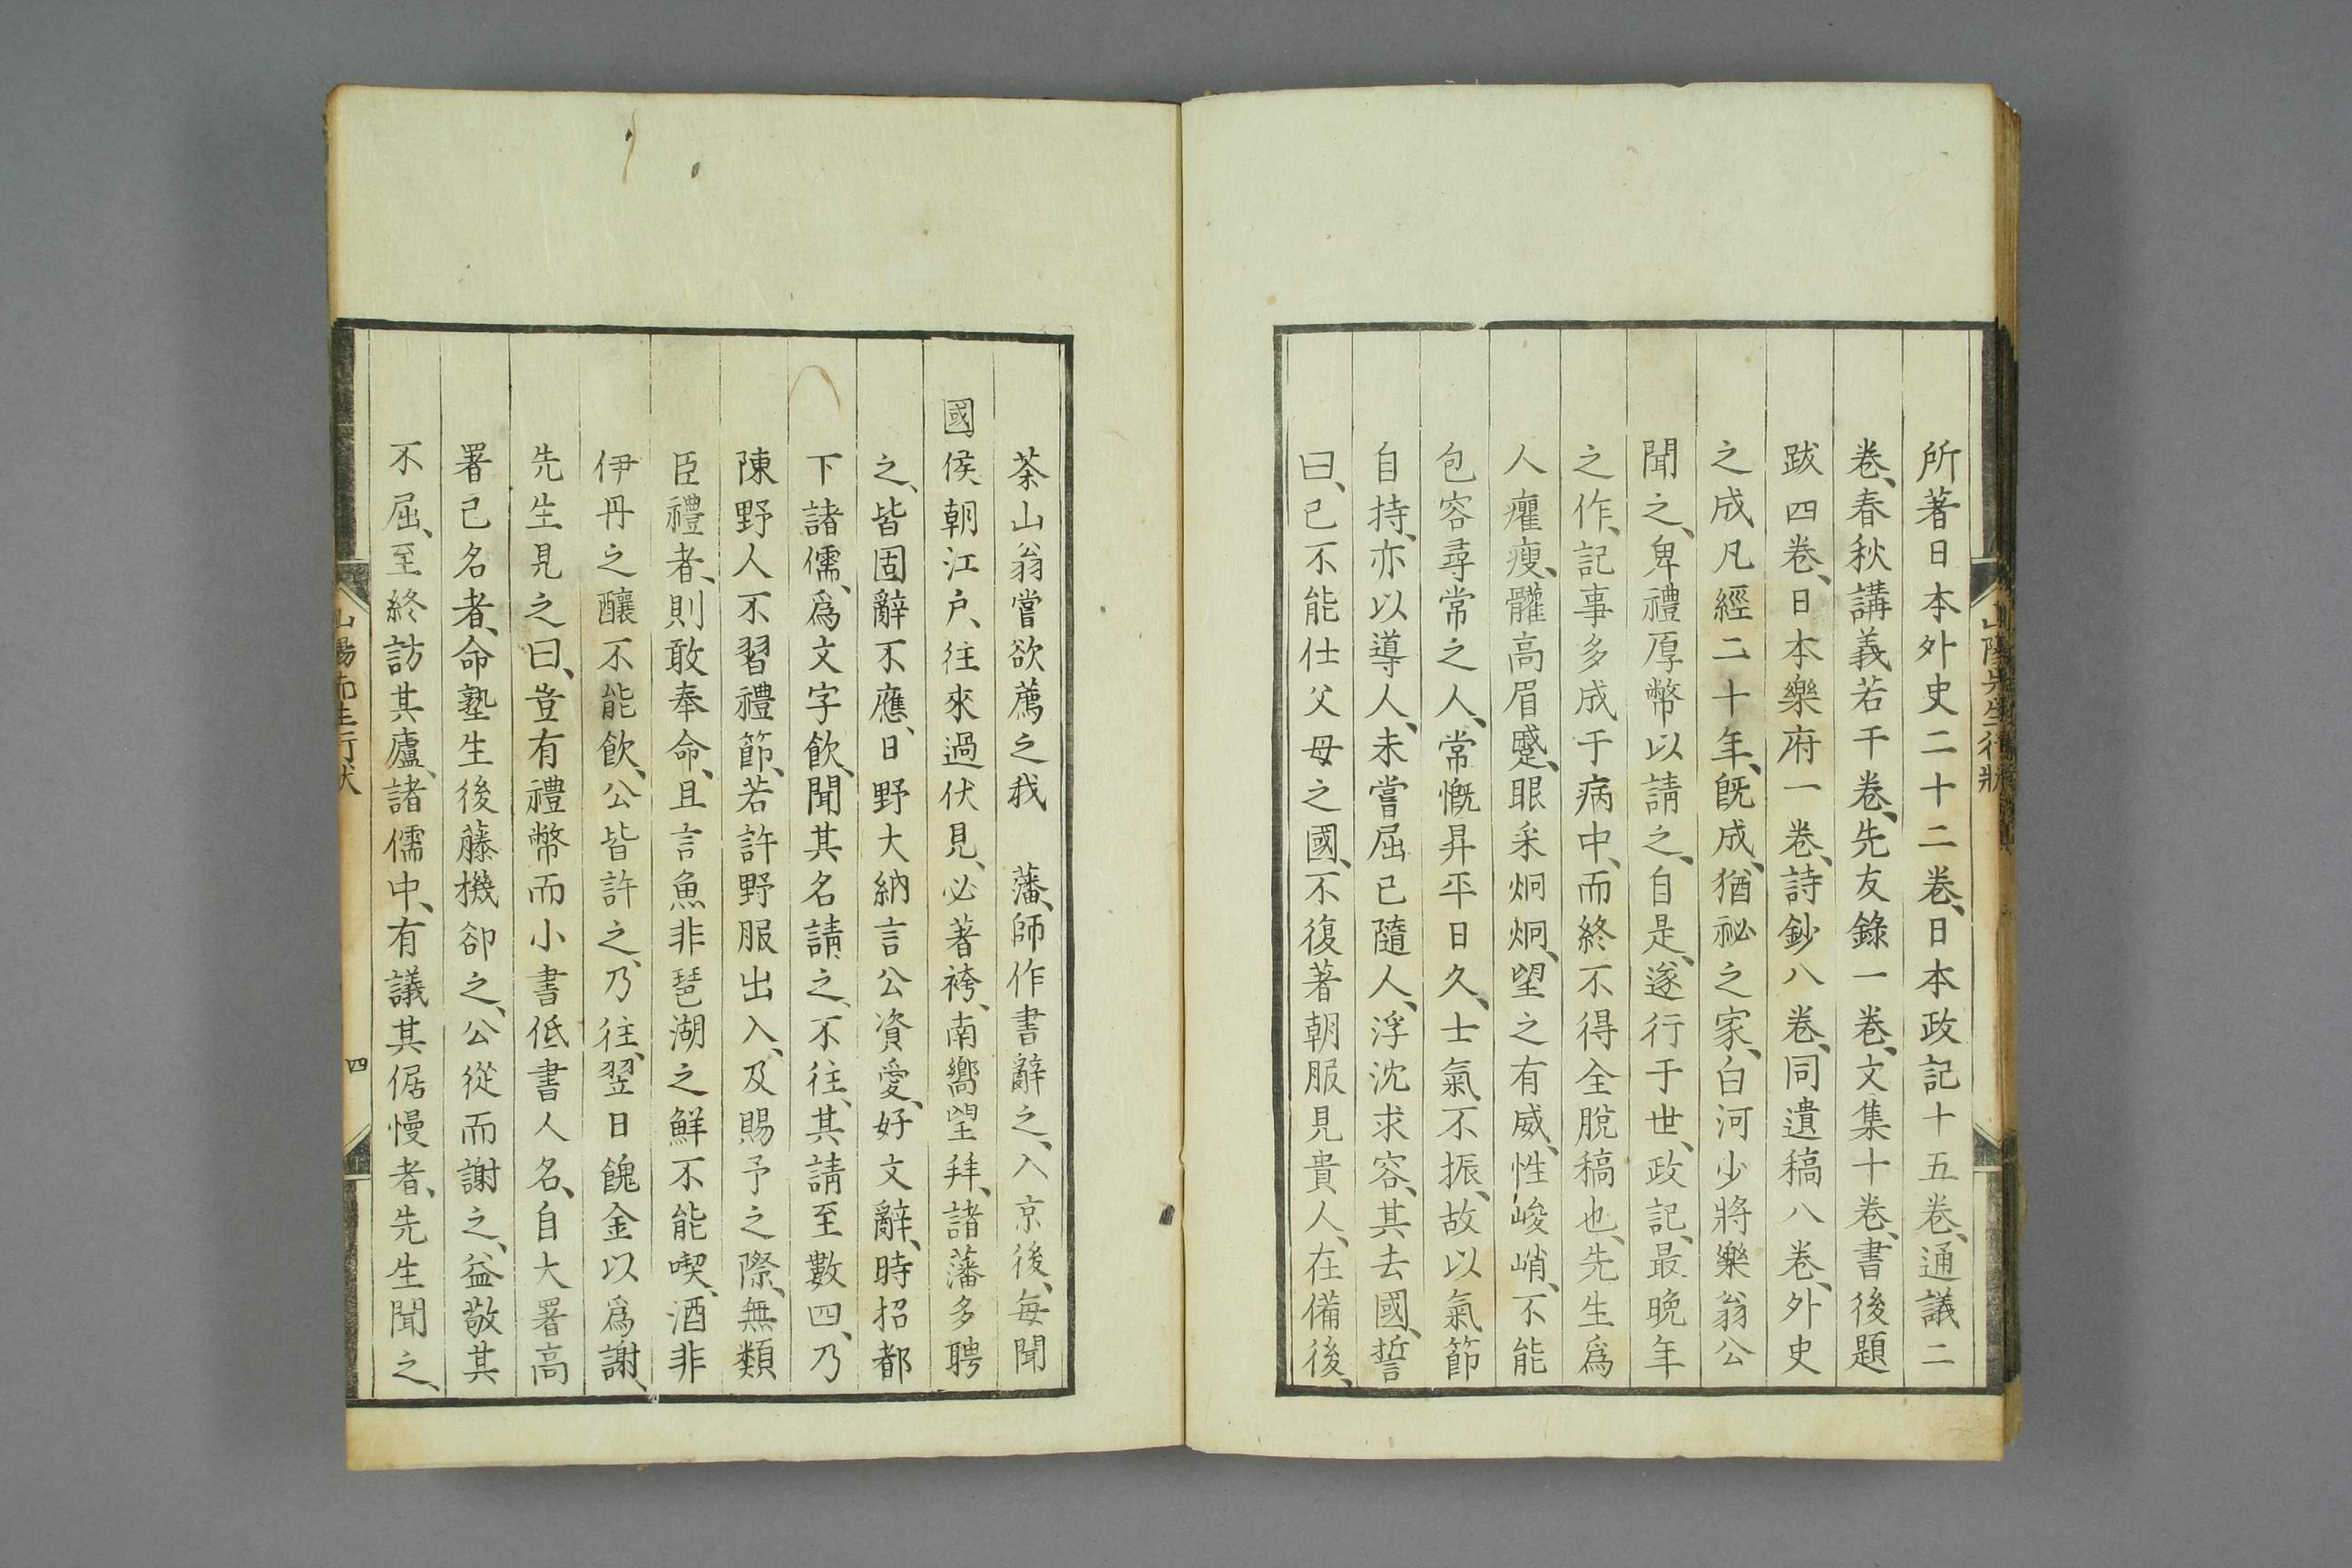 所著日本外史二十二卷、日本政記十五卷、通議二
卷、春秋講義若干卷、先友錄一卷、文集十卷、書後題
跋四卷、日本樂府一卷、詩鈔八卷、同遺稿八卷、外史
之成凡經二十年、既成、猶祕之家、白河少將樂翁公
聞之、卑禮厚幣以請之、自是、遂行于世、政記、最晩年
之作、記事多成于病中、而終不得全脫稿也、先生爲
人癯瘦、鸛高眉蹙、眼釆炯炯、望之有威、性峻峭、不能
包容尋常之人、常慨昇平日久、士氣不振、故以氣節
自持、亦以導人、未嘗屈己隨人、浮沈求容、其去國、誓
曰、已不能仕父母之國、不復著朝服見貴人、在備後、
茶山翁嘗欲薦之我 藩、師作書辭之、入京後、每聞
國侯朝江戶、往來過伏見、必著袴、南嚮望拜、諸藩多聘
之、皆固辭不應、日野大納言公資愛、好文辭、時招都
下諸儒、爲文字飲、聞其名請之、不往、其請至數四、乃
陳野人不習禮節、若許野服出入、及賜予之際、無類
臣禮者、則敢奉命、且言魚非琶湖之鮮不能喫、酒非
伊丹之釀不能飲、公皆許之、乃往、翌日餽金以爲謝、
先生見之曰、豈有禮幣而小書低書人名、自大署高
署己名者、命塾生後藤機卻之、公從而謝之、益敬其
不屈、至終訪其廬、諸儒中、有議其倨慢者、先生聞之、
山陽先生行狀
四